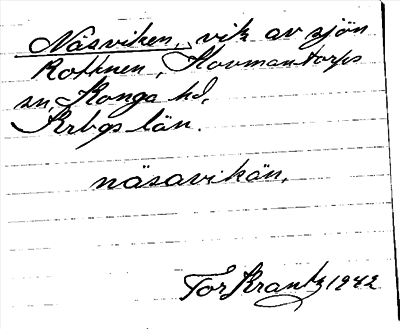 Näsviken, vik av sjön
Rottnen, Hovmantorps
sn, Konga hd,
Krbgs län.
näsavikän,
Tor Krantz 1942